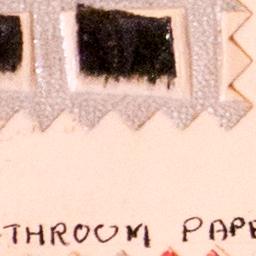 THROOM PAPE